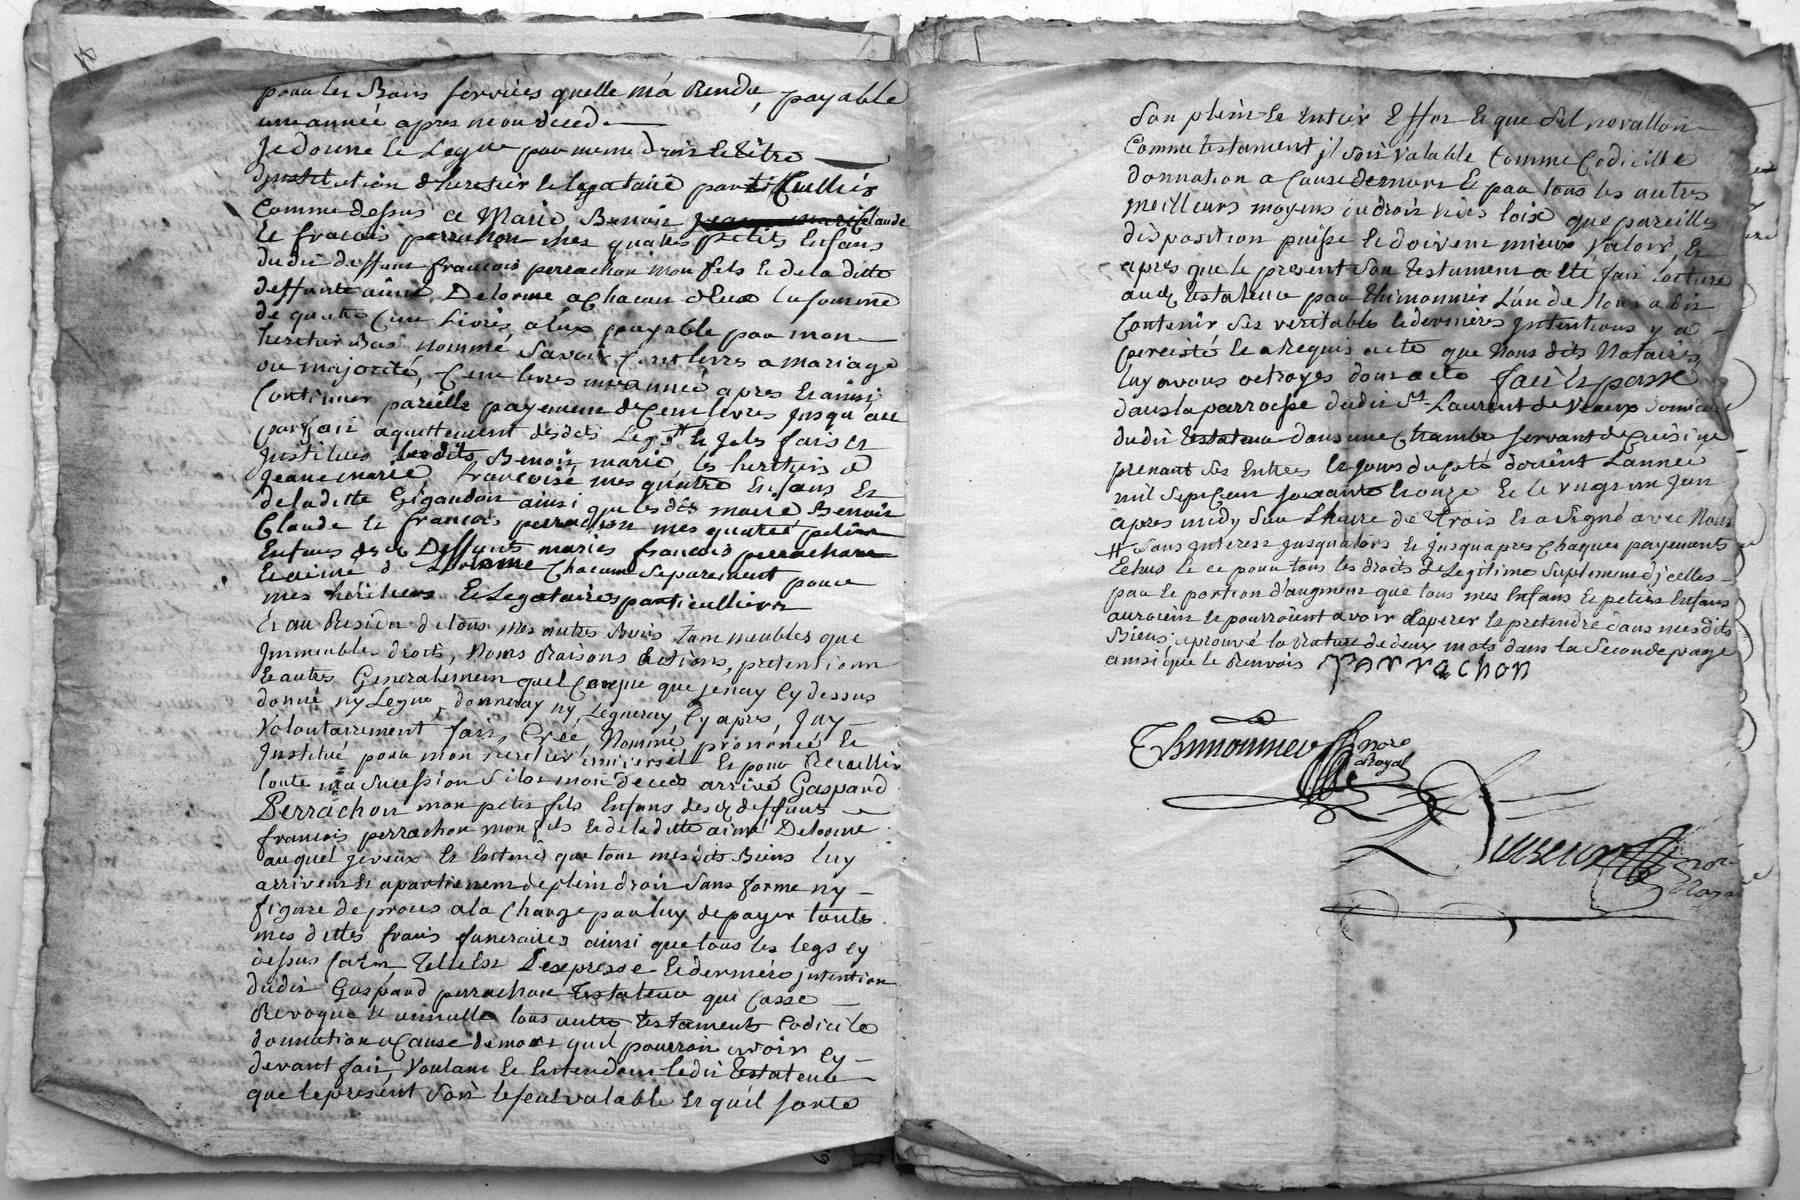 pour les Bons services quelle m'a Rendu, payable
une année apres mon deced
Je donne Et Legue par meme droit Et titre
d'institution d'heretier Et legataire particullier
Comme dessus a Marie Benoit Claude
Et francois perrachon mes quatre petits Enfans
dudit deffunt francois perrachon mon fils Et de la ditte
deffunte aimé Delorme a Chacun d'Eux la somme
de quatre Cent Livres a Eux payable par mon
heretier Bas nommé Savoir Cent livres a mariage
ou majorité, Cent livres une année apres Et ainsi
Continuer pareille payement de Cent livres jusqu'au
parfait aquittement desdits Legs # Et je les fais Et
Institues lesdits Benoit, marie, les heretiers de
Jeane marie francoise mes quatre Enfans Et
de la ditte Gigandon ainsi que lesdits marie Benoit
Claude Et francois perrachon mes quatre petits
Enfans desd Deffunts mariés francois perrachon
Et aimé Delorme Chacun Separement pour
mes héritiers Et Legataires particulliers
Et au Residu de tous mes autres Biens tant meubles que
Immeubles droits, Noms Raisons Et actions, pretentions
Et autres Generalement quelConque que je n'ay Cy dessus
donné ny Legué, donneray ny Legueray, Cy apres, J'ay
Volontairement fait, Créé Nommé, prononcé Et
Institué pour mon heretier universel Et pour Recullir
toute ma sucession sitot mon deced arrivé Gaspard
Perrachon mon petit fils Enfans desd deffunts
francois perrachon mon fils Et de la ditte aimé Delorme
auquel je veux Et Entend que tous mesdits Biens luy
arrivent Et apartienent de plein droit sans forme ny
figure de proces a la Charge par luy de payer toutes
mes dettes frais funeraires ainsi que tous les legs cy
dessus faits, Telle Est L'expresse Et derniere jntention
dudit Gaspard perrachon testateur qui Casse
Revoque Et annulle tous autre testament Codicile
donnation a Cause de mort qu'il pourroit avoir Cy
devant fait, Voulant Et Entendant ledit testateur
que le présent Soit le seul valable Et qu'il sorte
Son plein Et Entier Effet Et que Sil ne valloit
Comme testament jl soit Valable Comme Codicille
donnation a Cause de mort Et par tous les autres
meilleurs moyens du droit Et des loix que pareilles
disposition puisse Et doivent mieux Valoir, Et
apres que le present Son testament a Eté fait lecture
aud testateur par thimonnier L'un de Nous a dit
Contenir Ses veritables Et dernieres jntentions y a
percisté Et a Requis acte que Nous dits Notaires
luy avons octroyés dont acte fait Et passé
dans la parroisse dudit St Laurent de Vaux domicile
dudit testateur dans une Chambre servant de Cuisine
prenant Ses Entrees Et jours du Coté dorient L'année
mil Sept Cent soixante Et onze Et le vingt un juin
apres midy Sur L'heure de trois Et a Signé avec Nous
# Sans Interest jusqualors Et jusquapres Chaques payements
Echus Et ce pour tous les droits de Legitime Suplement d'jcelles
part Et portion d'augment que tous mes Enfans Et petits Enfans
auroient Et pourroient avoir Esperer Et pretendre dans mesdits
Biens, aprouvé la Rature de deux mots dans la Seconde page
ainsi que le Renvois Perrachon
Thimonnier nore
Royal
nore
Royal